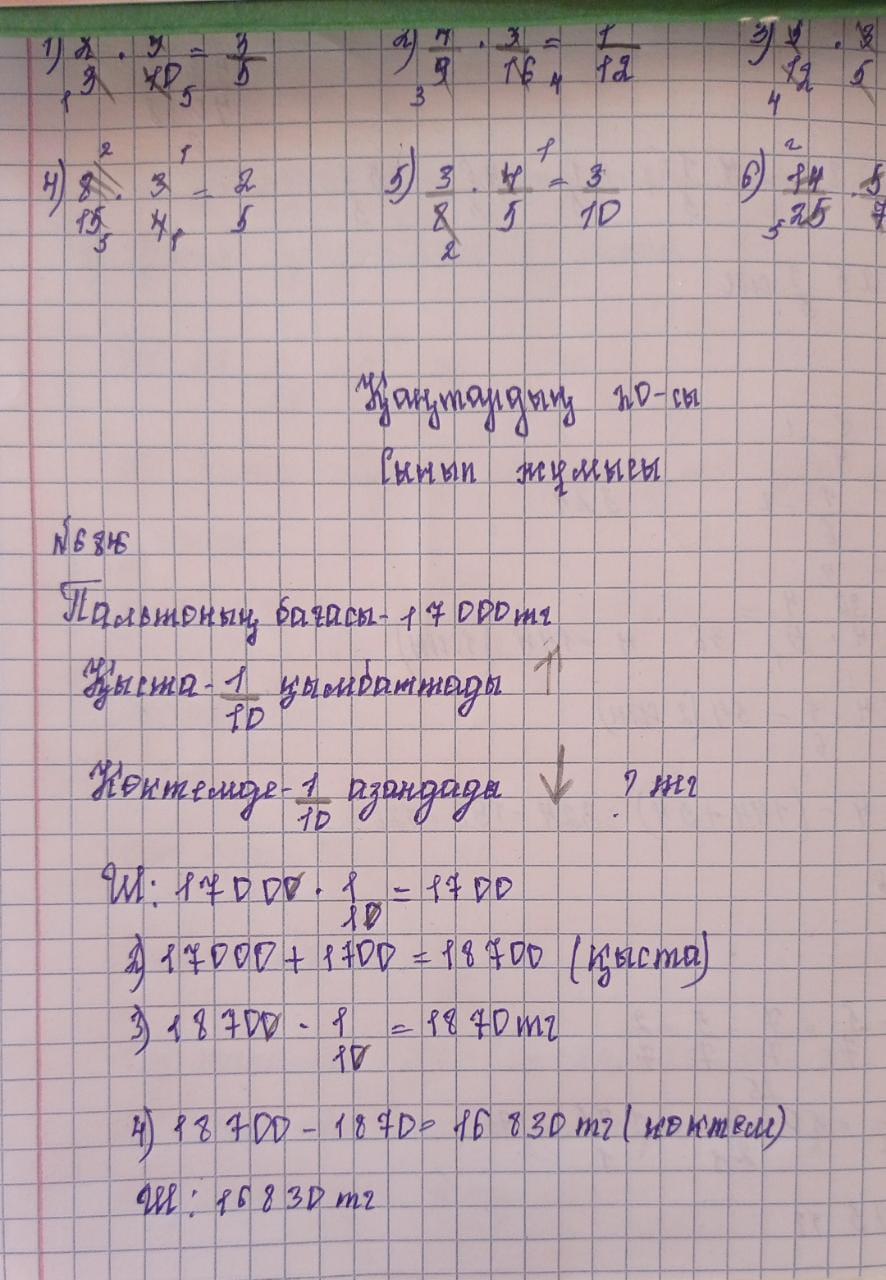 1) 2/3 · 9/10 = 3/5 2) 4/9 · 3/16 = 1/12 3)
4) 8/15 · 3/4 = 2/5 5) 3/8 · 4/5 = 3/10 6) 14/25 · 5/7
Қаңтардың 20-сы
Сынып жұмысы
Пальтоның бағасы - 17 000 тг
Қыста - 1/10 қымбаттады ↑
Көктемде - 1/10 азандада ↓ ? тг
Ш: 17000 · 1/10 = 1700
2) 17000 + 1700 = 18700 (қыста)
3) 18700 · 1/10 = 1870 тг
4) 18700 - 1870 = 16 830 тг (көктем)
Ш: 16830 тг